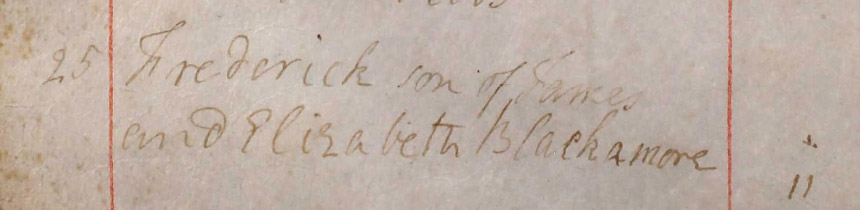 25 Frederick son of James
and Elizabeth Blackamore
11